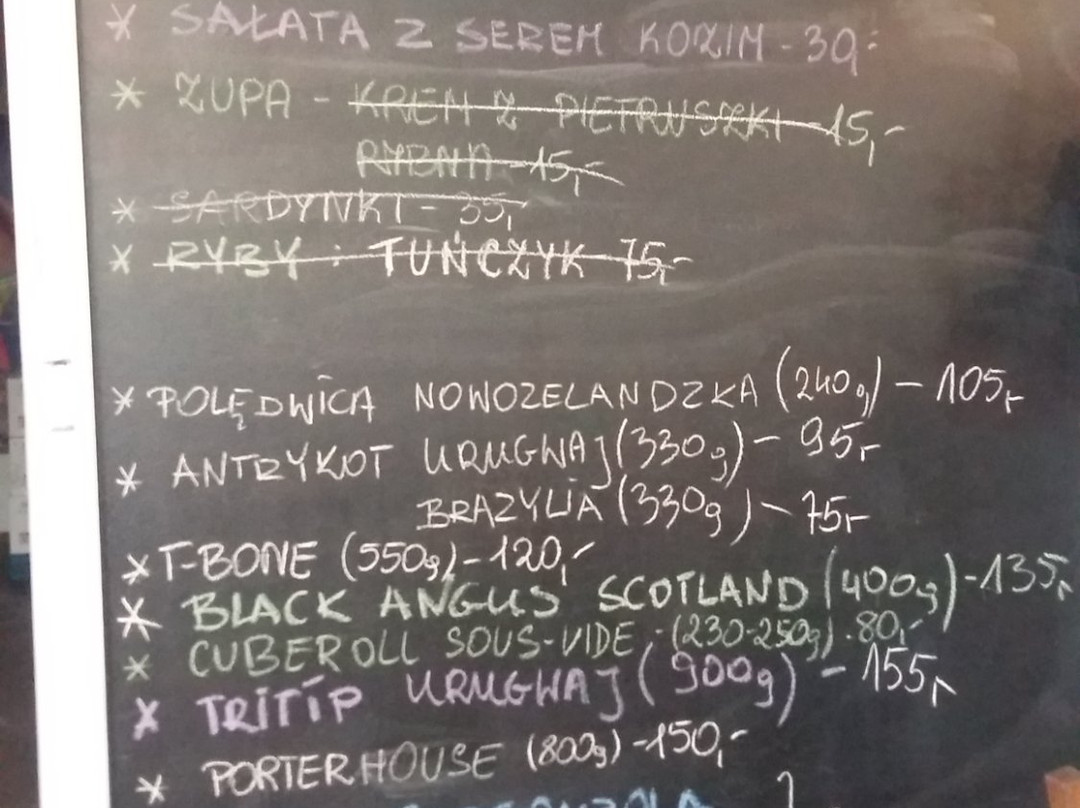 * SAŁATA Z SEREM KOZIM - 39:
* ZUPA - KREM Z PIETRUSZKI 15,-
RYBNA - 15,-
* SARDYNKI - 35,-
* RYBY : TUŃCZYK 75,-
* POLĘDWICA NOWOZELANDZKA (240g) - 105,-
* ANTRYKOT URUGWAJ (330g) - 95,-
BRAZYLIA (330g) - 75,-
* T-BONE (550g) - 120,-
* BLACK ANGUS SCOTLAND (400g) - 135,-
* CUBEROLL SOUS-VIDE - (230-250g). 80,-
* TRITIP URUGWAJ (900g) - 155,-
* PORTERHOUSE (800g) - 150,-